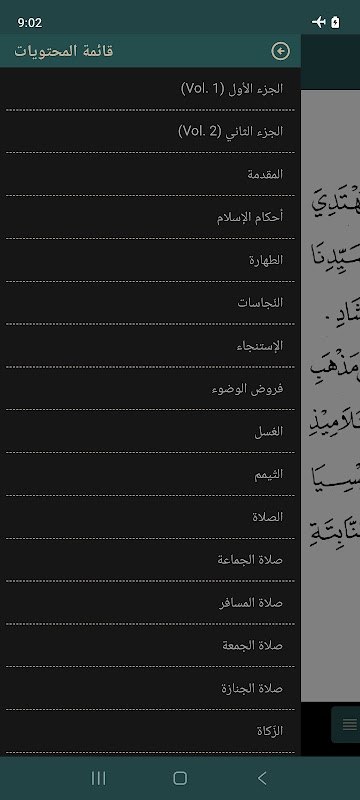 9:02
قائمة المحتويات
الجزء الأول (Vol. 1)
الجزء الثاني (Vol. 2)
المقدمة
أحكام الإسلام
الطهارة
النّجاسات
الإستنجاء
فروض الوضوء
الغسل
التيمم
الصلاة
صلاة الجماعة
صلاة المسافر
صلاة الجمعة
صلاة الجنازة
الزّكاة